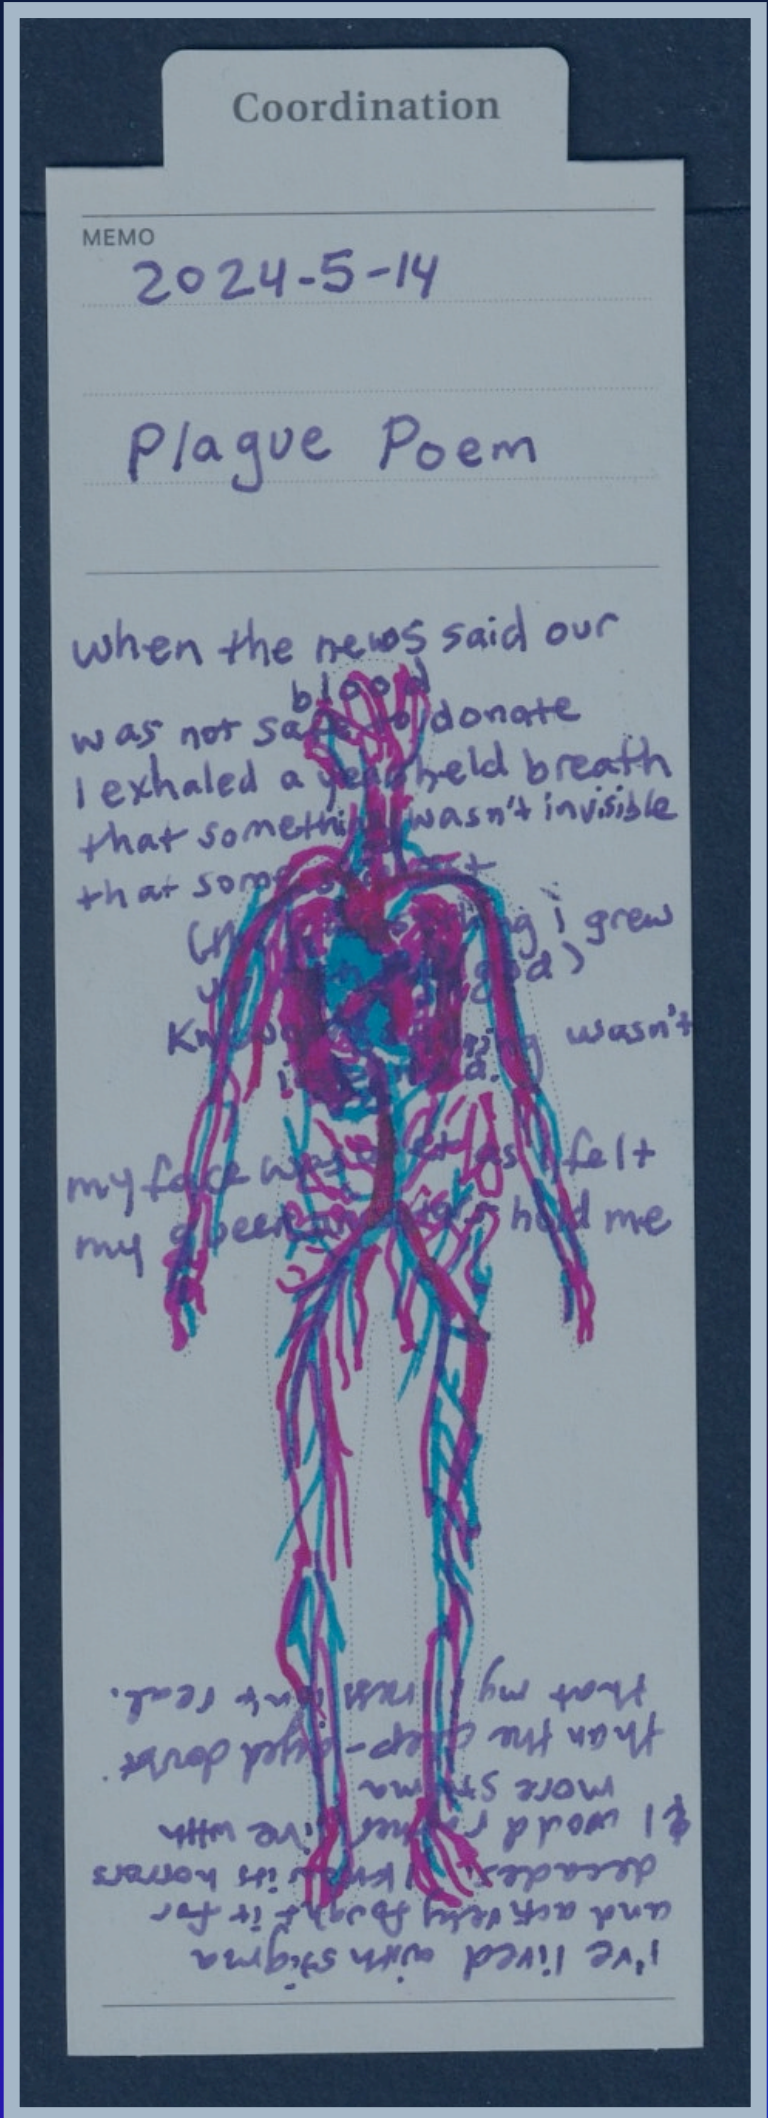 Coordination
MEMO
2024-5-14
Plague Poem
when the news said our
blood
was not safe to donate
I exhaled a year held breath
that something wasn't invisible
that some
i grew
wasn't
my face was as I felt
my hold me
I've lived with stigma
and actively fought it for
decades. I know its horrors
& I would rather live with
more stigma
than the deep-eyed doubt
that my illness isn't real.